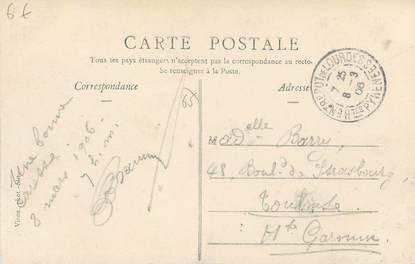 6€
CARTE POSTALE
Tous les pays étrangers n'acceptent pas la correspondance au recto.
Se renseigner à la Poste.
Correspondance
Adresse
ENTREPOT DE LOURDES
7 35
8 - 3
06
Une bonne
8 mars 1906
7 h. m.
Melle Barry
48 Boul. de Strasbourg,
Toulouse
Hte Garonne
Viron, phot.